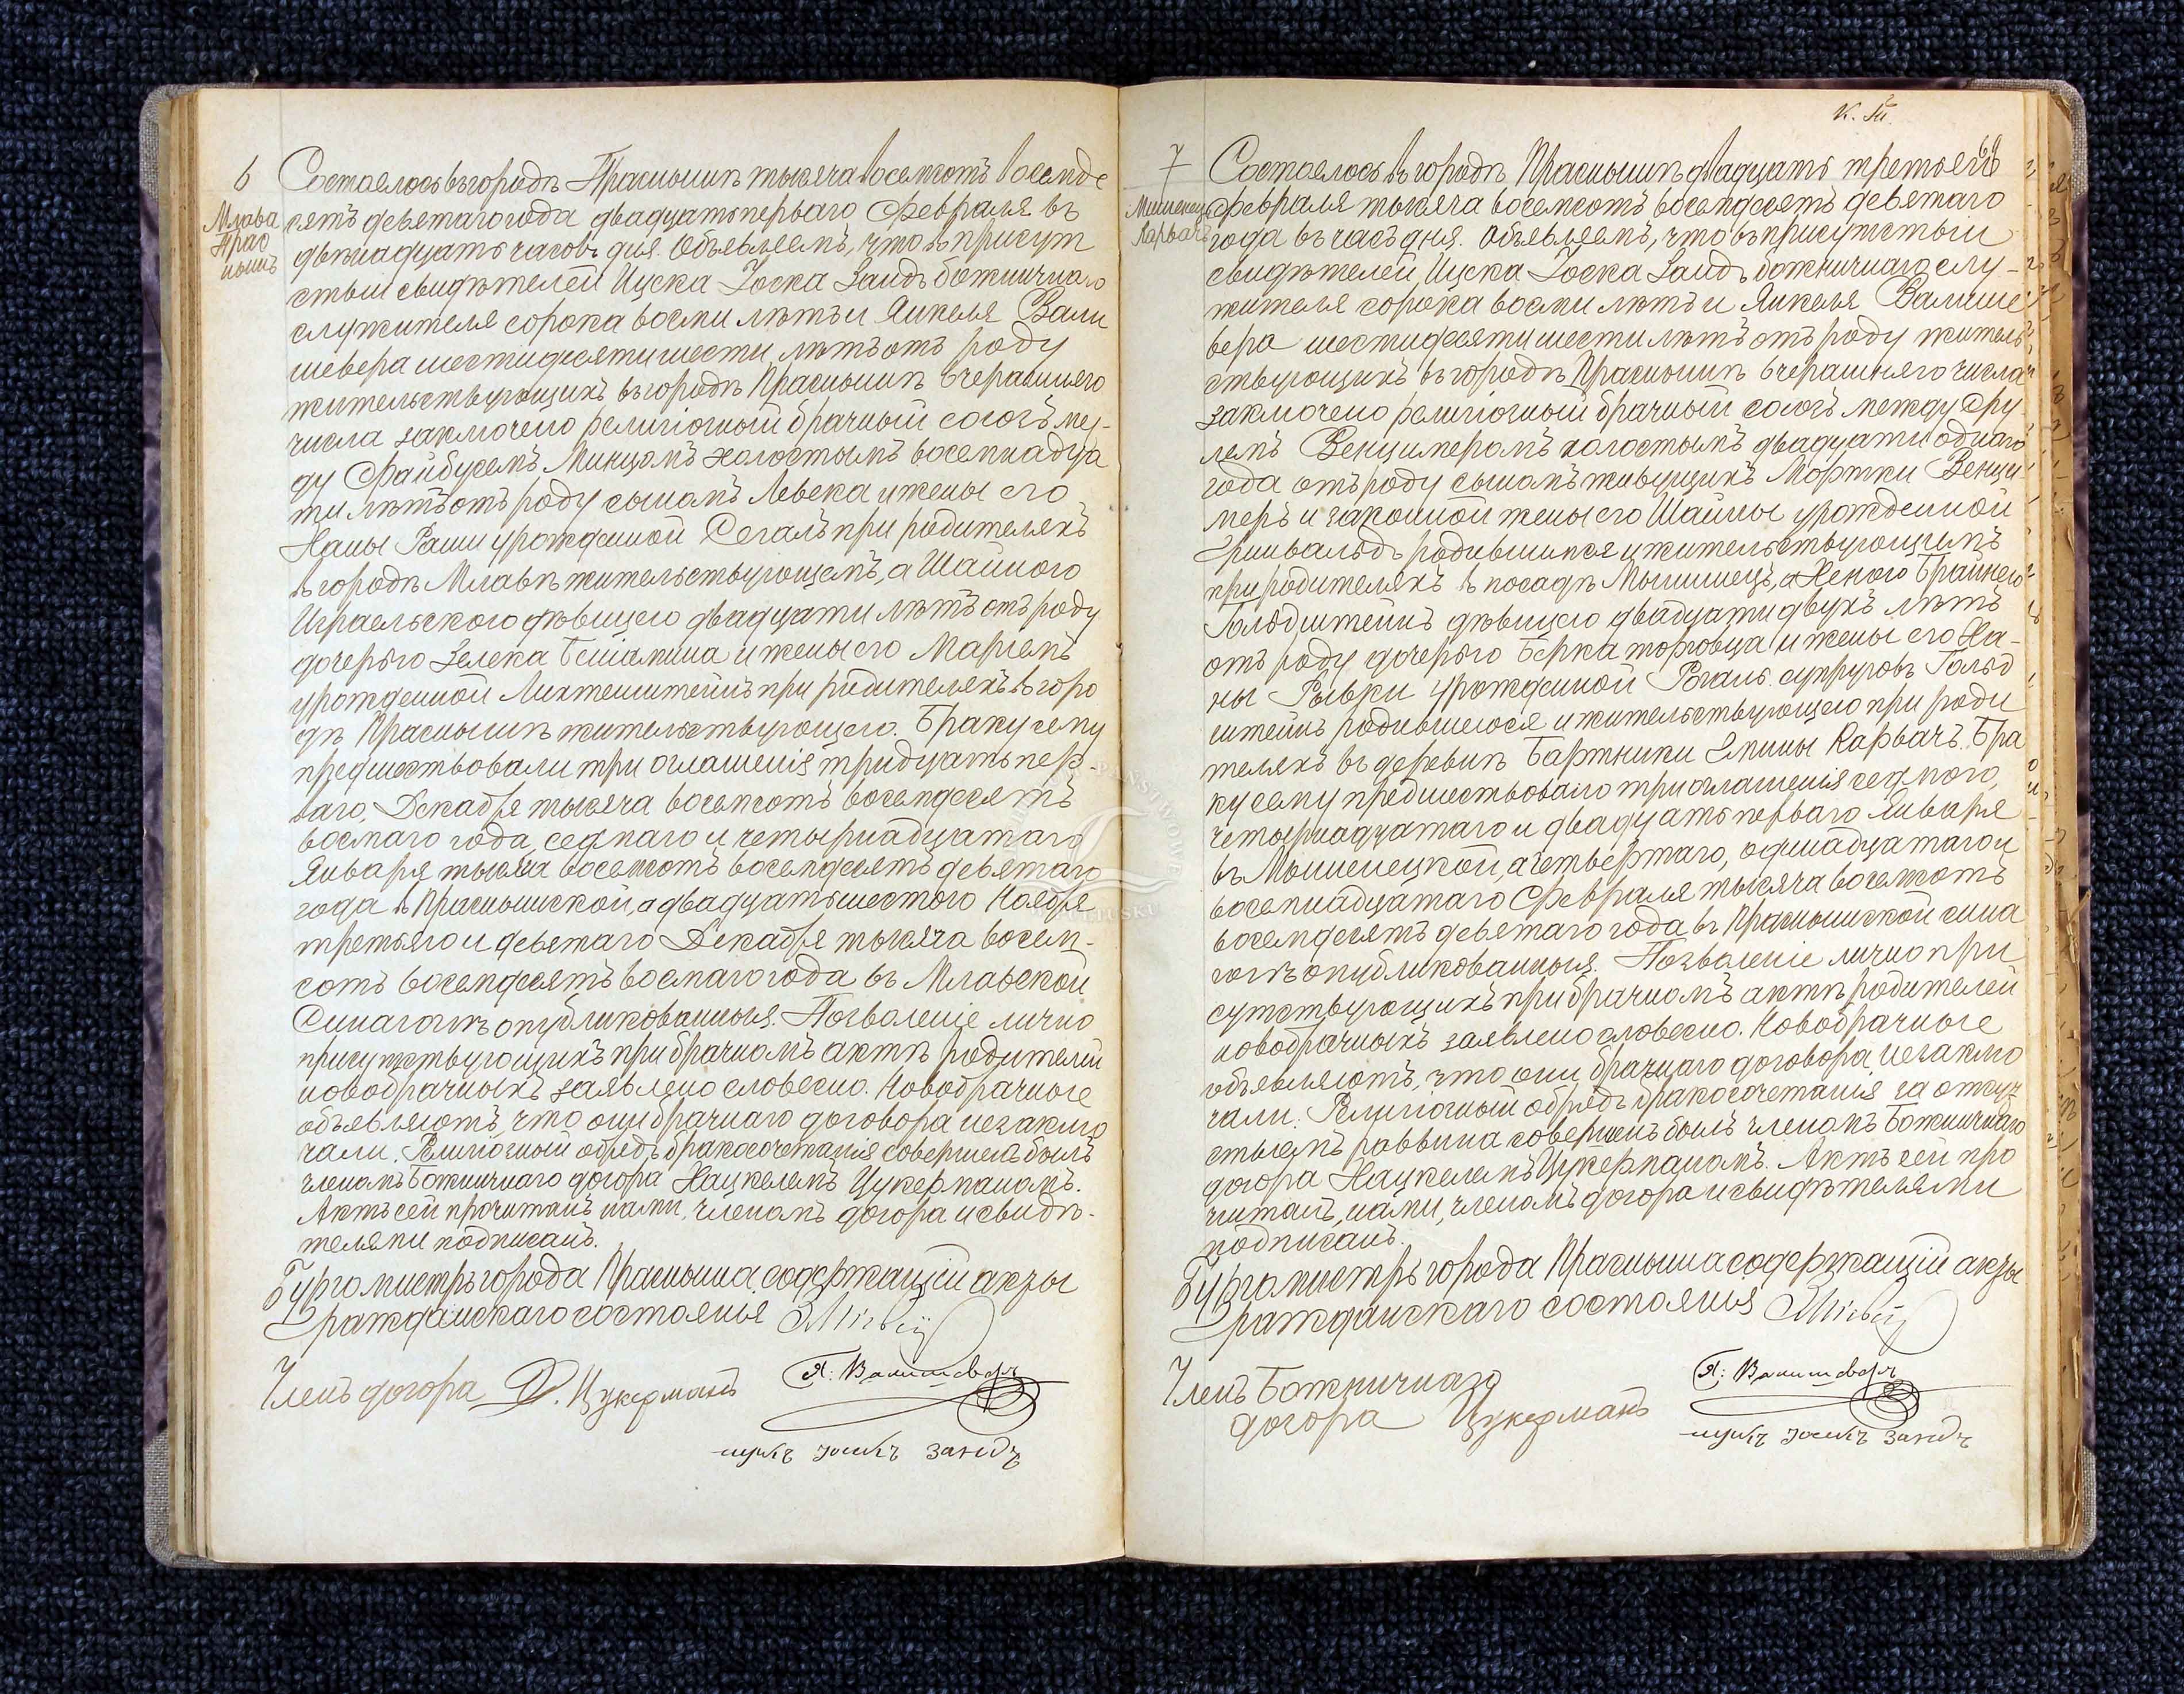 6
Млава
Прас
нышъ
Состоялось въ городѣ Праснышѣ тысяча восемсотъ восемде
сятъ девятаго года двадцать перваго Февраля въ
двѣнадцать часовъ дня. Объявляемъ, что въ присут
ствіи свидѣтелей Ицека Іоска Зандъ божничнаго
служителя сорока восми лѣтъ и Янкеля Вали
шевера шестидесяти шести лѣтъ отъ роду
жительствующихъ въ городѣ Праснышѣ вчерашняго
числа заключено религіозный брачный союзъ меж-
ду Файбусемъ Минцомъ холостымъ восемнадца
ти лѣтъ отъ роду сыномъ Левека и жены его
Ханы Раши урожденной Сегалъ при родителяхъ
въ городѣ Млавѣ жительствующемъ, а Шайною
Израельскою дѣвицею двадцати лѣтъ отъ роду
дочерью Зелека Беніамина и жены его Маріемъ
урожденной Лихтенштейнъ при родителяхъ въ горо
дѣ Праснышѣ жительствующею. Браку сему
предшествовали три оглашенія тридцать пер-
ваго Декабря тысяча восемсотъ восемдесятъ
восмаго года, седмаго и четырнадцатаго
Января тысяча восемсотъ восемдесятъ девятаго
года въ Праснышской, а двадцать шестого Ноября
третьяго и девятаго Декабря тысяча восем-
сотъ восемдесятъ восмаго года въ Млавской
Синагогѣ опубликованныя. Позволеніе лично
присутствующихъ при брачномъ актѣ родителей
новобрачныхъ заявлено словесно. Новобрачные
объявляютъ, что они брачнаго договора незаклю
чали. Религіозный обрядъ бракосочетанія совершенъ былъ
членомъ Божничнаго дозора Хацкелемъ Цукерманомъ.
Актъ сей прочитанъ нами, членомъ дозора и свидѣ-
телями подписанъ.
Бургомистръ города Прасныша содержащій акты
Гражданскаго состоянія
Членъ дозора Х. Цукерманъ
Я: Валишеверъ
ицекъ Іосекъ Зандъ
К. М.
69
7
Мишенецъ
Карвачъ
Состоялось въ городѣ Праснышѣ двадцать третьяго
Февраля тысяча восемсотъ восемдесятъ девятаго
года въ часъ дня. Объявляемъ, что въ присутствіи
свидѣтелей Ицека Іоска Зандъ божничнаго слу-
жителя сорока восми лѣтъ и Янкеля Валише
вера шестидесяти шести лѣтъ отъ роду житель
ствующихъ въ городѣ Праснышѣ вчерашняго числа
заключено религіозный брачный союзъ между Сру
лемъ Венцимеромъ холостымъ двадцати однаго
года отъ роду сыномъ живущихъ Мортки Венци
меръ и законной жены его Шайны урожденной
Гринвальдъ родившимся и жительствующимъ
при родителяхъ въ посадѣ Мышинецъ, а Хеною Брайнею
Гольдштейнъ дѣвицею двадцати двухъ лѣтъ
отъ роду дочерью Берка торговца и жены его Ха-
ны Рывки урожденной Рогаль супруговъ Гольд
штейнъ родившеюся и жительствующею при роди
теляхъ въ деревнѣ Бартники Гмины Карвачъ. Бра
ку сему предшествовало три оглашенія седмого,
четырнадцатаго и двадцать перваго Января
въ Мышенецкой, а четвертаго, одинадцатаго и
восемнадцатаго Февраля тысяча восемсотъ
восемдесятъ девятаго года въ Праснышской сина
гогѣ опубликованныя. Позволеніе лично при
сутствующихъ при брачномъ актѣ родителей
новобрачныхъ заявлено словесно. Новобрачные
объявляютъ, что они брачнаго договора незаклю
чали. Религіозный обрядъ бракосочетанія за отсут
ствіемъ раввина совершенъ былъ членомъ Божничнаго
дозора Хацкелемъ Цукерманомъ. Актъ сей про
читанъ, нами, членомъ дозора и свидѣтелями
подписанъ.
Бургомистръ города Прасныша содержащій акты
Гражданскаго состоянія
Членъ Божничнаго
дозора Цукерманъ
Я: Валишеверъ
ицекъ Іосекъ Зандъ